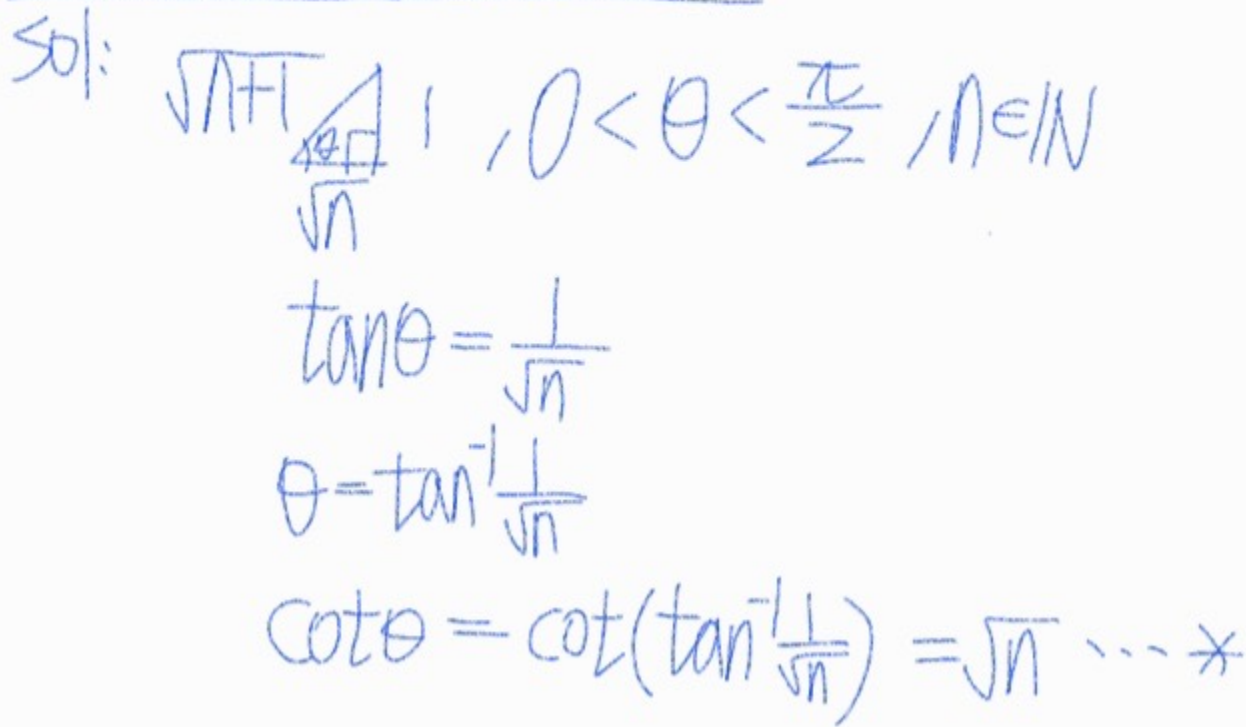 sol: √n+1 θ 1 , 0 < θ < π/2 , n∈ℕ
√n
tanθ = 1/√n
θ = tan⁻¹ 1/√n
cotθ = cot(tan⁻¹ 1/√n) = √n ... *